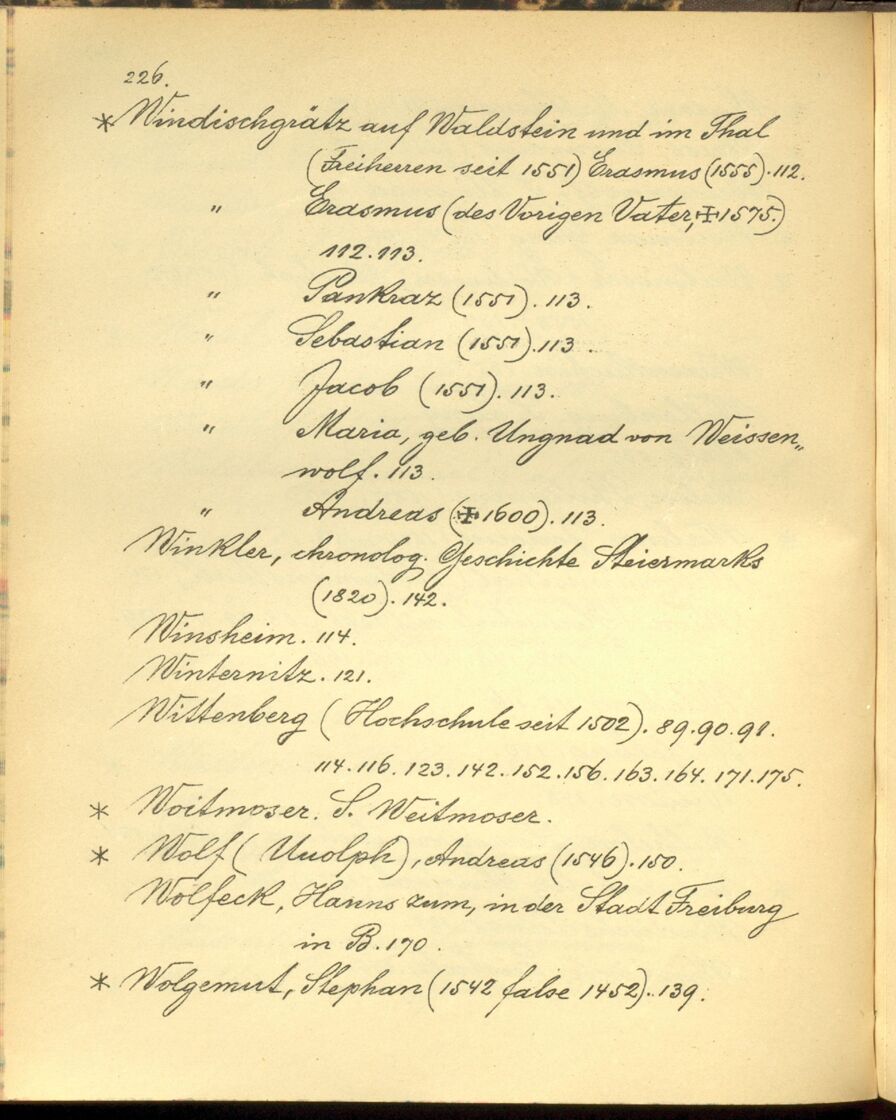 226.
* Windischgrätz auf Waldstein und im Thal
(Freiherren seit 1551) Erasmus (1555). 112.
" Erasmus (des Vorigen Vater, ✠ 1575.)
112. 113.
" Pankraz (1551). 113.
" Sebastian (1551). 113.
" Jacob (1551). 113.
" Maria, geb. Ungnad von Weissen„
wolf. 113.
" Andreas (✠ 1600). 113.
Winkler, chronolog. Geschichte Steiermarks
(1820). 142.
Winsheim. 114.
Winternitz. 121.
Wittenberg (Hochschule seit 1502). 89. 90. 91.
114. 116. 123. 142. 152. 156. 163. 164. 171. 175.
* Woitmoser. S. Weitmoser.
* Wolf (Uuolph), Andreas (1546). 150.
Wolfeck, Hanns zum, in der Stadt Freiburg
in B. 170.
* Wolgemut, Stephan (1542 false 1452). 139.